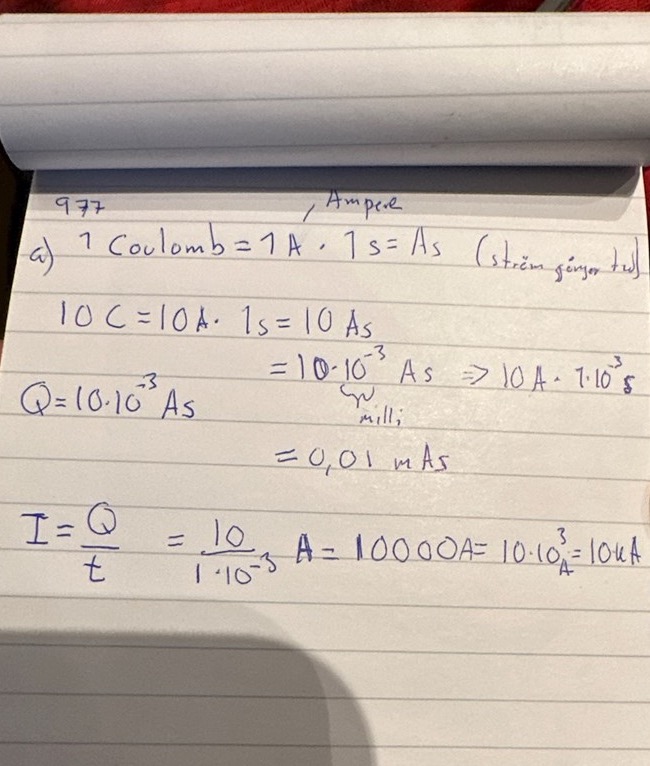 977
, Ampere
a) 1 Coulomb = 1 A · 1 s = As (ström gånger tid)
10 C = 10 A · 1s = 10 As
= 10·10⁻³ As ⇒ 10 A · 1·10⁻³ s
Q = 10·10⁻³ As
milli
= 0,01 mAs
I = Q/t = 10/(1·10⁻³) A = 10000A = 10·10³ A = 10 kA